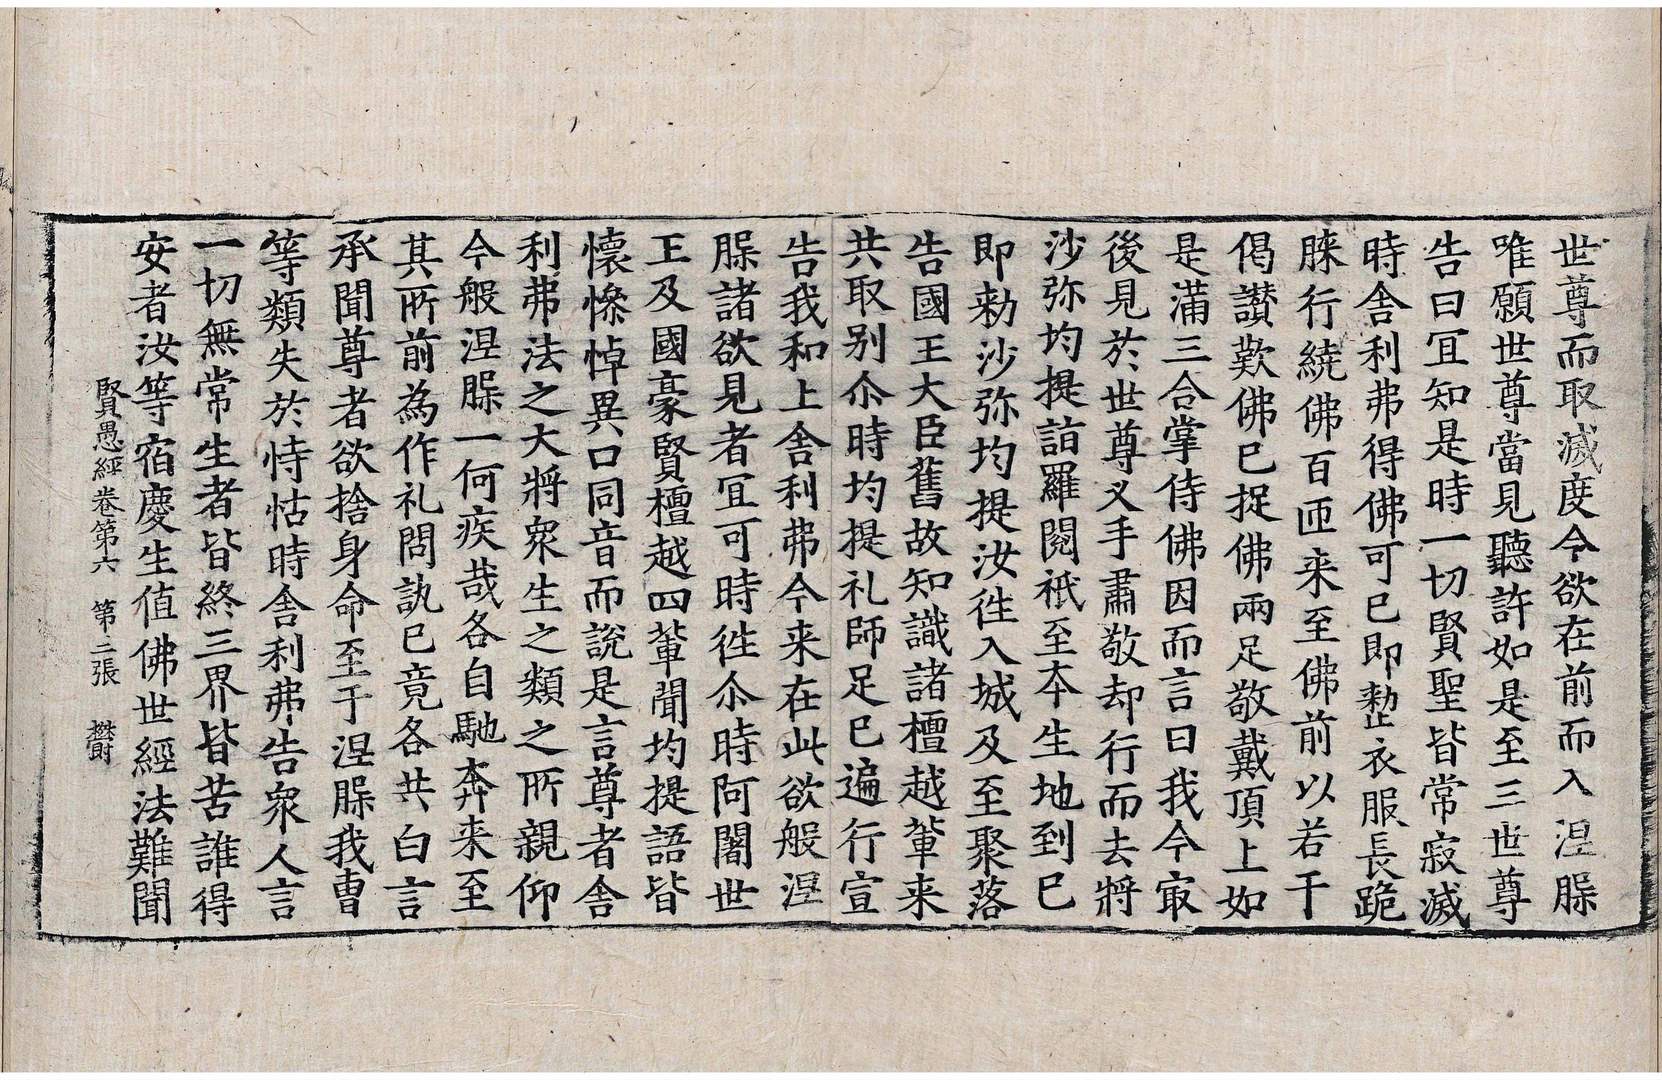 世尊而取滅度今欲在前而入涅膟
唯願世尊當見聽許如是至三世尊
告曰冝知是時一切賢聖皆常寂滅
時舍利弗得佛可已即整衣服長跪
膝行繞佛百匝来至佛前以若干
偈讃歎佛已捉佛兩足敬戴頂上如
是滿三合掌侍佛因而言曰我今㝡
後見於世尊叉手肅敬却行而去將
沙弥均提詣羅閱祇至本生地到已
即勑沙弥均提汝徃入城及至聚落
告國王大臣舊故知識諸檀越輩来
共取别尒時均提礼師足已遍行宣
告我和上舍利弗今来在此欲般涅
膟諸欲見者冝可時徃尒時阿闍世
王及國豪賢檀越四輩聞均提語皆
懷慘悼異口同音而說是言尊者舍
利弗法之大將衆生之類之所親仰
今般涅膟一何疾哉各自馳奔来至
其所前為作礼問訊已竟各共白言
承聞尊者欲捨身命至于涅膟我曹
等類失於恃怙時舍利弗告衆人言
一切無常生者皆終三界皆苦誰得
安者汝等宿慶生值佛世經法難聞
賢愚經卷第六　第二張　樊尉